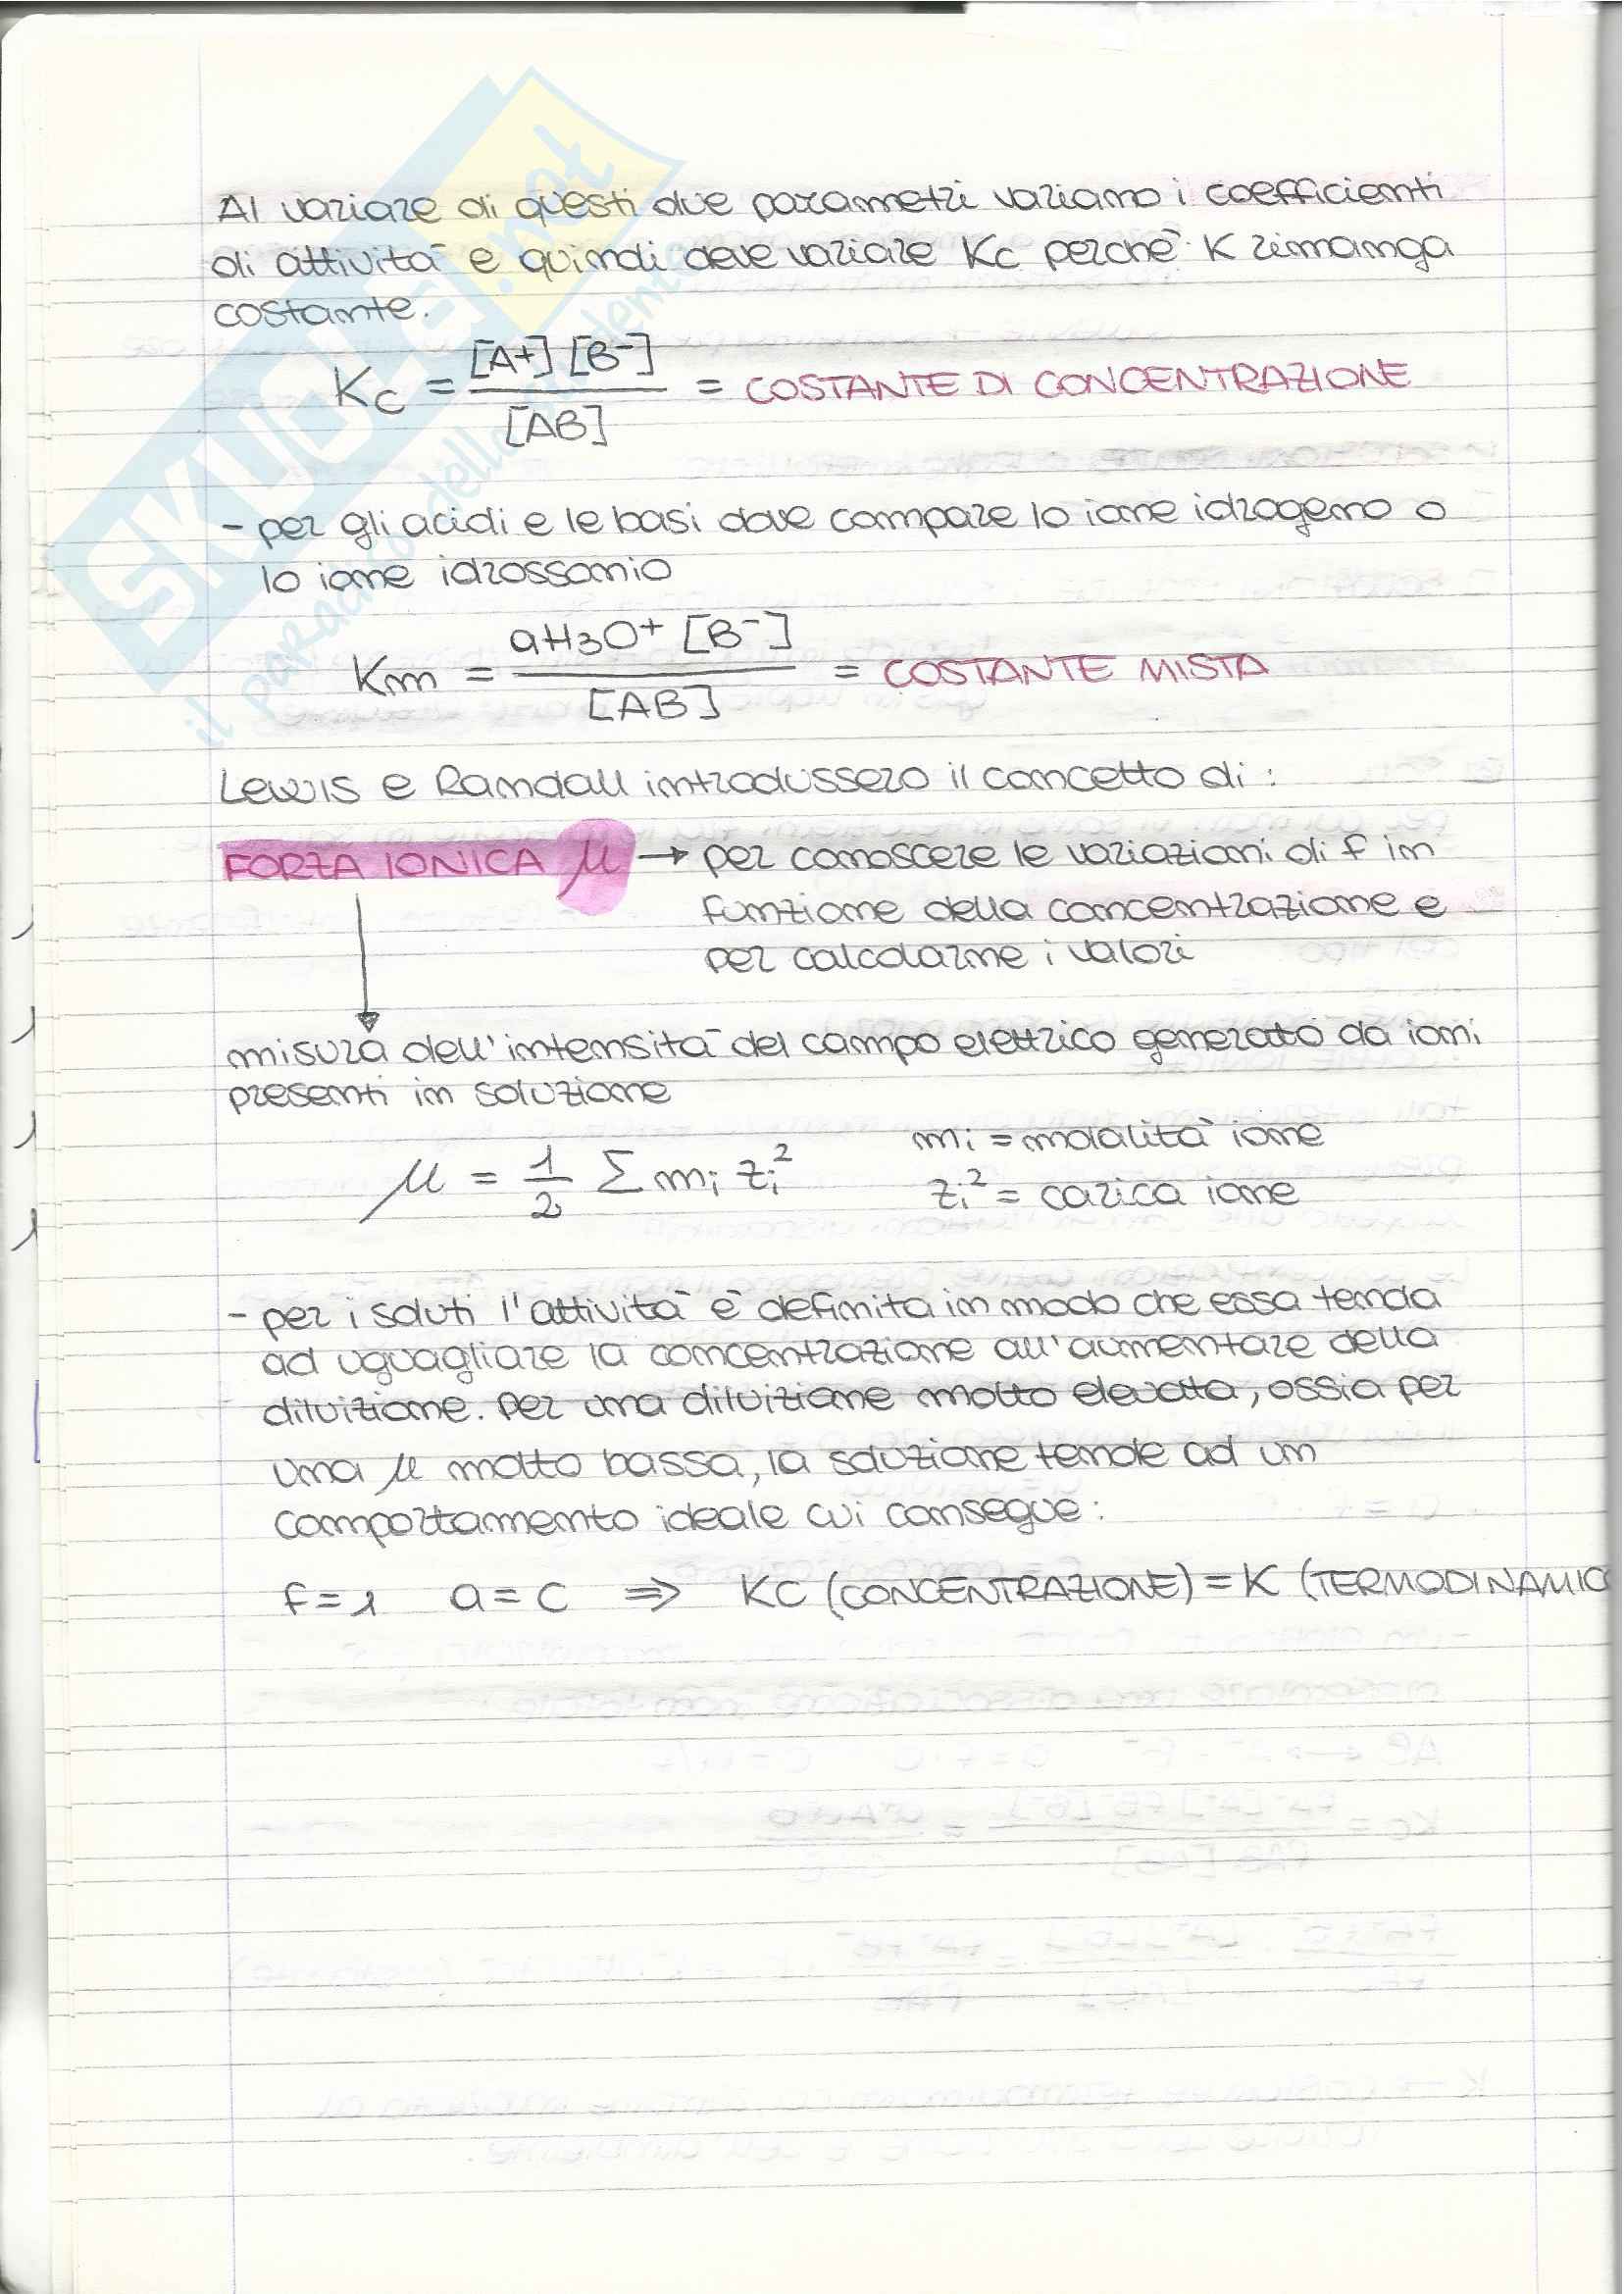 Al variare di questi due parametri variano i coefficienti
di attività e quindi deve variare Kc perchè K rimanga
costante.
Kc = [A+] [B-] / [AB] = COSTANTE DI CONCENTRAZIONE
- per gli acidi e le basi dove compare lo ione idrogeno o
lo ione idrossonio
Km = aH3O+ [B-] / [AB] = COSTANTE MISTA
Lewis e Randall introdussero il concetto di:
FORZA IONICA μ → per conoscere le variazioni di f in
funzione della concentrazione e
per calcolarne i valori
misura dell'intensità del campo elettrico generato da ioni
presenti in soluzione
μ = 1/2 Σ mi zi² mi = molalità ione
zi² = carica ione
- per i soluti l'attività è definita in modo che essa tenda
ad uguagliare la concentrazione all'aumentare della
diluizione. Per una diluizione molto elevata, ossia per
una μ molto bassa, la soluzione tende ad un
comportamento ideale cui consegue:
f=1 a=C ⇒ KC (CONCENTRAZIONE) = K (TERMODINAMIC
SKUOLA.net
il paradiso dello